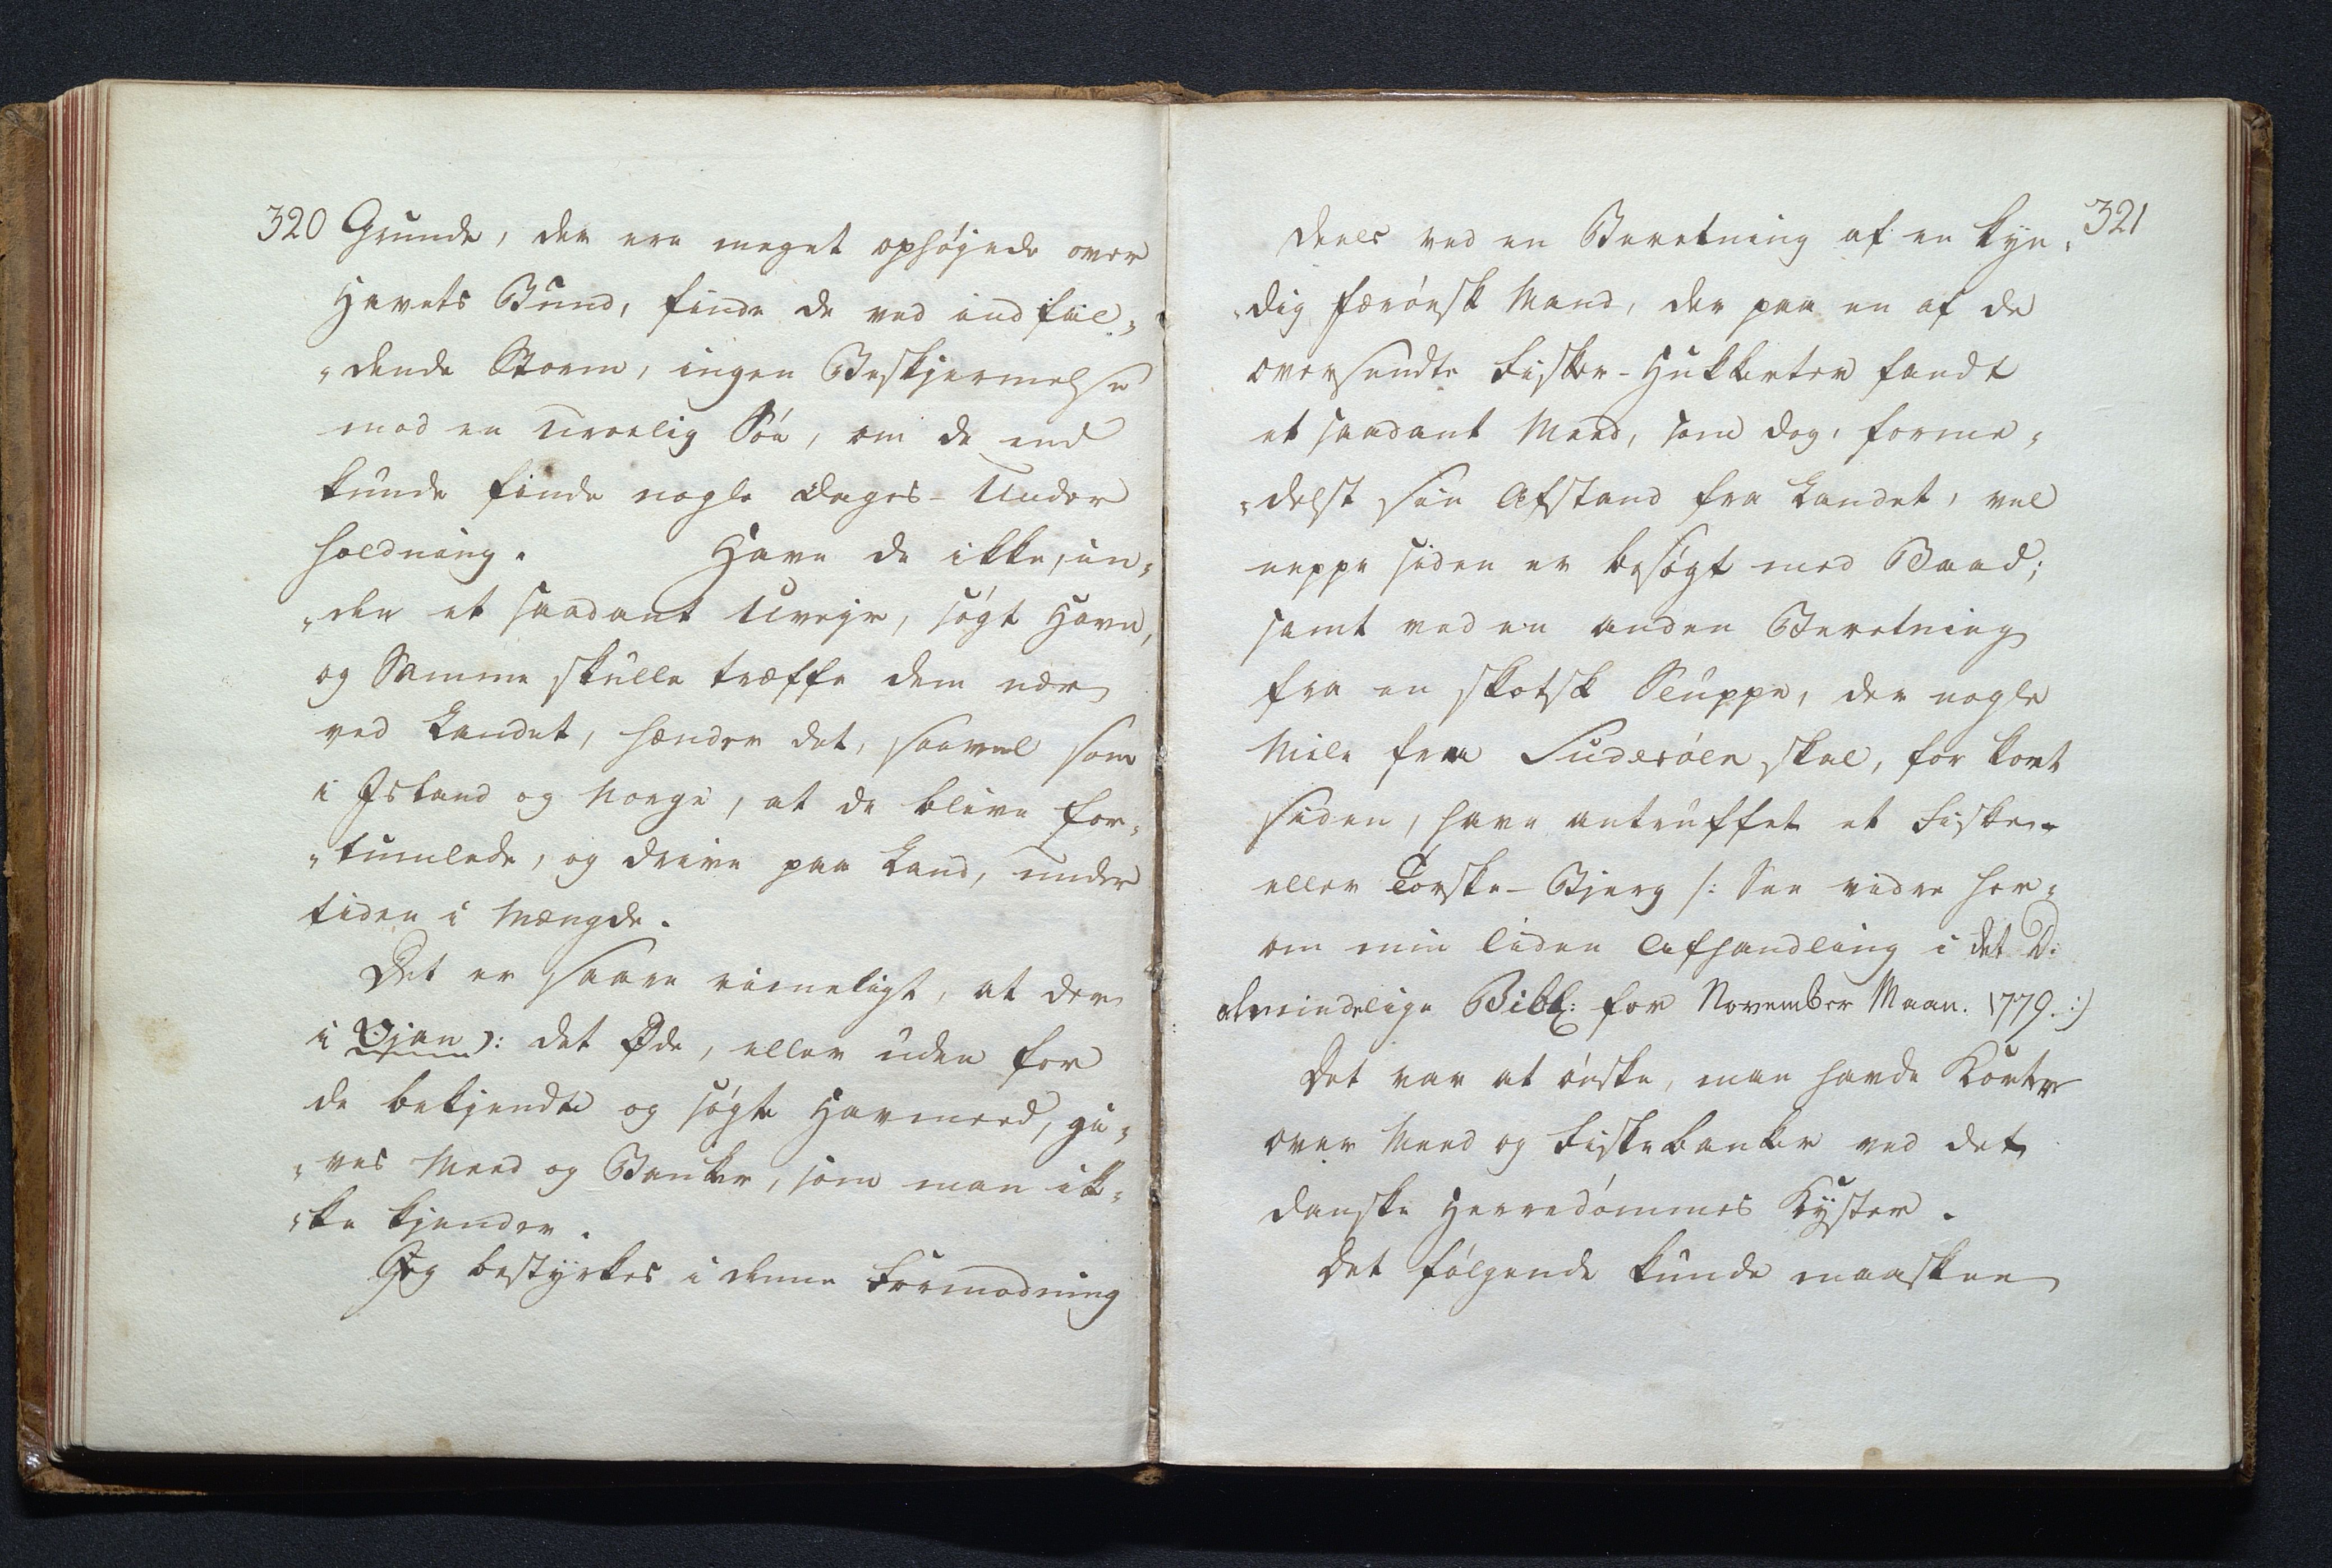 320
Grunde, der ere meget ophøjede over
Havets Bund, finde de ved indfal„
„dende Storm, ingen Beskjermelse
mod en uroelig Søe, om de end
kunde finde nogle Dages-Under
holdning. Have de ikke, un„
„der et saadant Uvejr, søgt Havn,
og Samme skulle træffe dem nær
ved Landet, hænder det, saavel som
i Island og Norge, at de blive for„
„tumlede, og drive paa Land, under
tiden i Mængde.
Det er saare rimeligt, at der
i Ojan ): det Øde, eller uden for
de bekjendte og søgte Havmeed, gi„
„ves Meed og Banker, som man ik„
„ke kjender.
Jeg bestyrkes i denne Formodning
321
deels ved en Beretning af en kyn„
„dig færøisk Mand, der paa en af de
oversendte Fisker-Hukkerter fandt
et saadant Meed, som dog, forme„
„delst sin Afstand fra Landet, vel
neppe siden er besøgt med Baad;
samt ved en anden Beretning
fra en skotsk Sluppe, der nogle
Mile fra Suderøen skal, for kort
siden, have antruffet et Fisker
eller Torske-Bjerg /: See videre her„
om min liden Afhandling i det D:
almindelige Bibl: for November Maan. 1779. :/
Det var at ønske, man havde Korter
over Meed og Fiskebanker ved det
danske Herredømmes Kyster.
Det følgende kunde maaskee